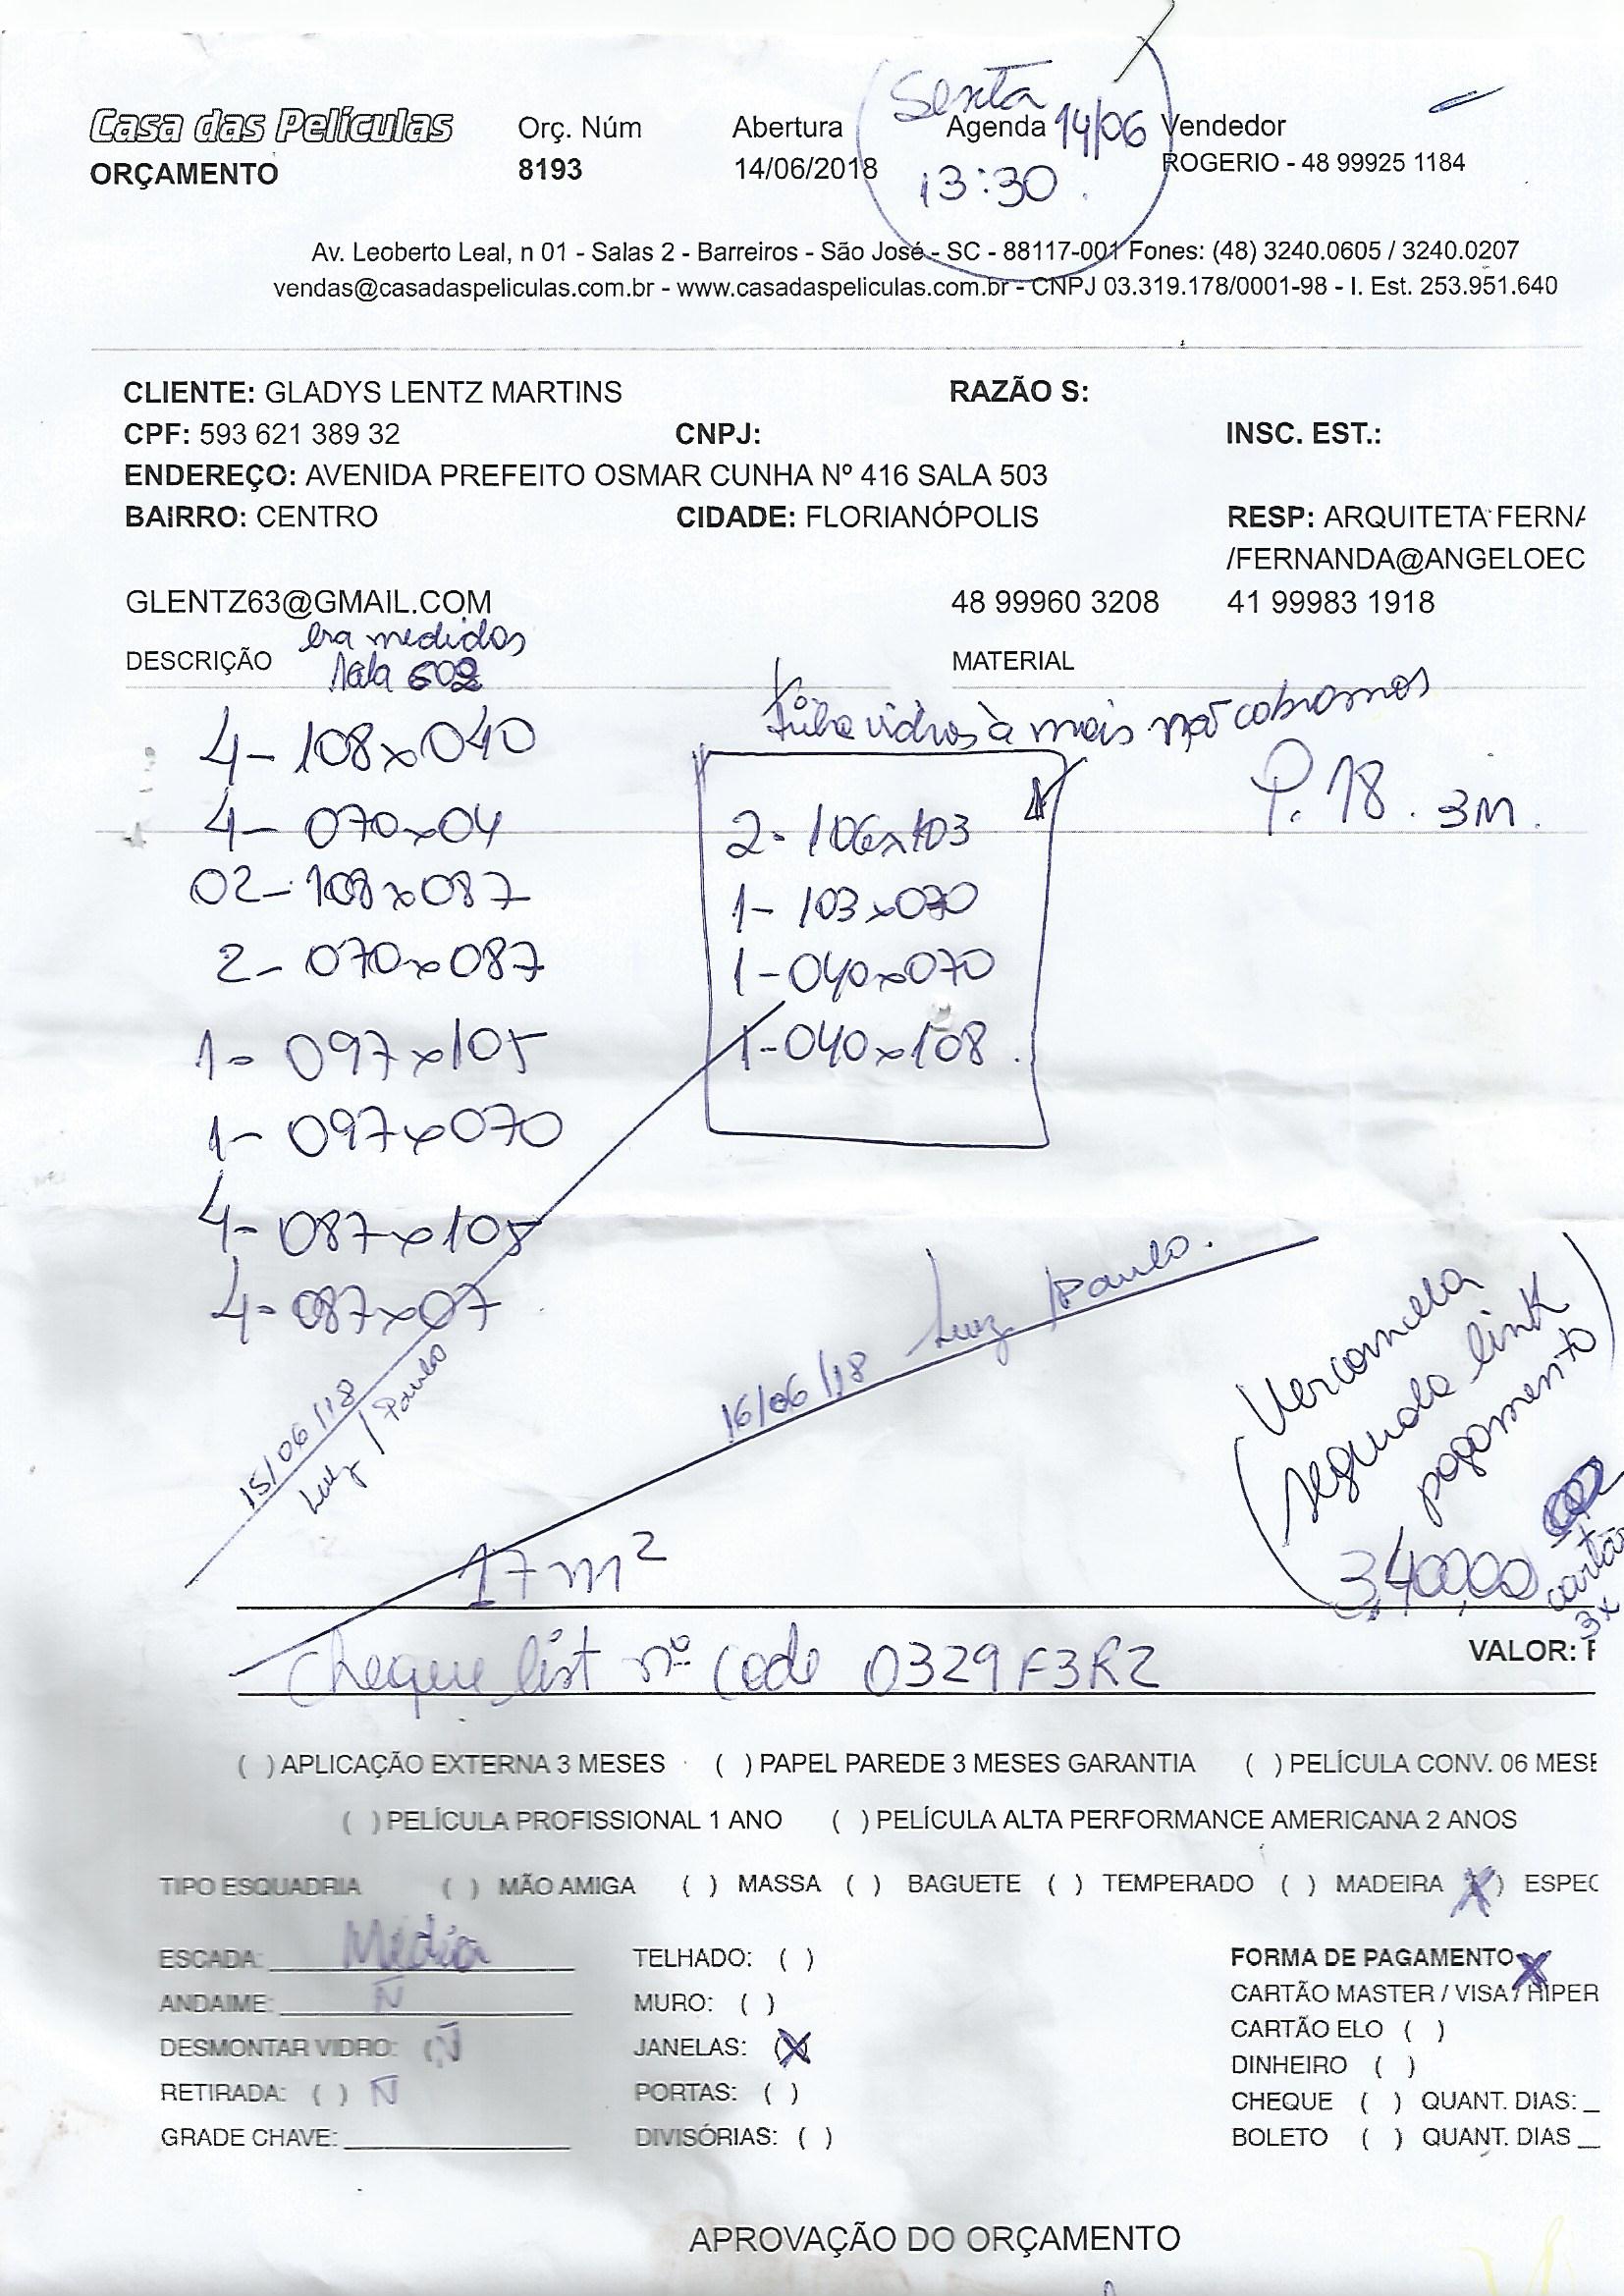 Casa das Películas
ORÇAMENTO
Orç. Núm
8193
Abertura
14/06/2018
Sexta
Agenda 14/06
13:30
Vendedor
ROGERIO - 48 99925 1184
Av. Leoberto Leal, n 01 - Salas 2 - Barreiros - São José - SC - 88117-001 Fones: (48) 3240.0605 / 3240.0207
vendas@casadaspeliculas.com.br - www.casadaspeliculas.com.br - CNPJ 03.319.178/0001-98 - I. Est. 253.951.640
CLIENTE: GLADYS LENTZ MARTINS RAZÃO S:
CPF: 593 621 389 32 CNPJ: INSC. EST.:
ENDEREÇO: AVENIDA PREFEITO OSMAR CUNHA Nº 416 SALA 503
BAIRRO: CENTRO CIDADE: FLORIANÓPOLIS RESP: ARQUITETA FERNA
/FERNANDA@ANGELOEC
GLENTZ63@GMAIL.COM 48 99960 3208 41 99983 1918
DESCRIÇÃO medidos
MATERIAL
vidros à mais não cobramos
P. 18. 3M.
4- 108x040
4- 070x04
02- 108x087
2- 070x087
1- 097x105
1- 097x070
4- 087x105
4- 087x07
2- 106x103
1- 103x070
1- 040x070
1- 040x108.
15/06/18
Luiz / Paulo
16/06/18 Luiz / Paulo.
segunda link
pagamento
3,400,00
cartão
3x
17 m²
VALOR: F
Cheque list nº code 0329F3R2
( ) APLICAÇÃO EXTERNA 3 MESES ( ) PAPEL PAREDE 3 MESES GARANTIA ( ) PELÍCULA CONV. 06 MESE
( ) PELÍCULA PROFISSIONAL 1 ANO ( ) PELÍCULA ALTA PERFORMANCE AMERICANA 2 ANOS
TIPO ESQUADRIA ( ) MÃO AMIGA ( ) MASSA ( ) BAGUETE ( ) TEMPERADO ( ) MADEIRA (X) ESPEC
ESCADA: Média
ANDAIME: N
DESMONTAR VIDRO: (N)
RETIRADA: ( ) N
GRADE CHAVE:
TELHADO: ( )
MURO: ( )
JANELAS: (X)
PORTAS: ( )
DIVISÓRIAS: ( )
FORMA DE PAGAMENTO X
CARTÃO MASTER / VISA / HIPER
CARTÃO ELO ( )
DINHEIRO ( )
CHEQUE ( ) QUANT. DIAS: _
BOLETO ( ) QUANT. DIAS _
APROVAÇÃO DO ORÇAMENTO